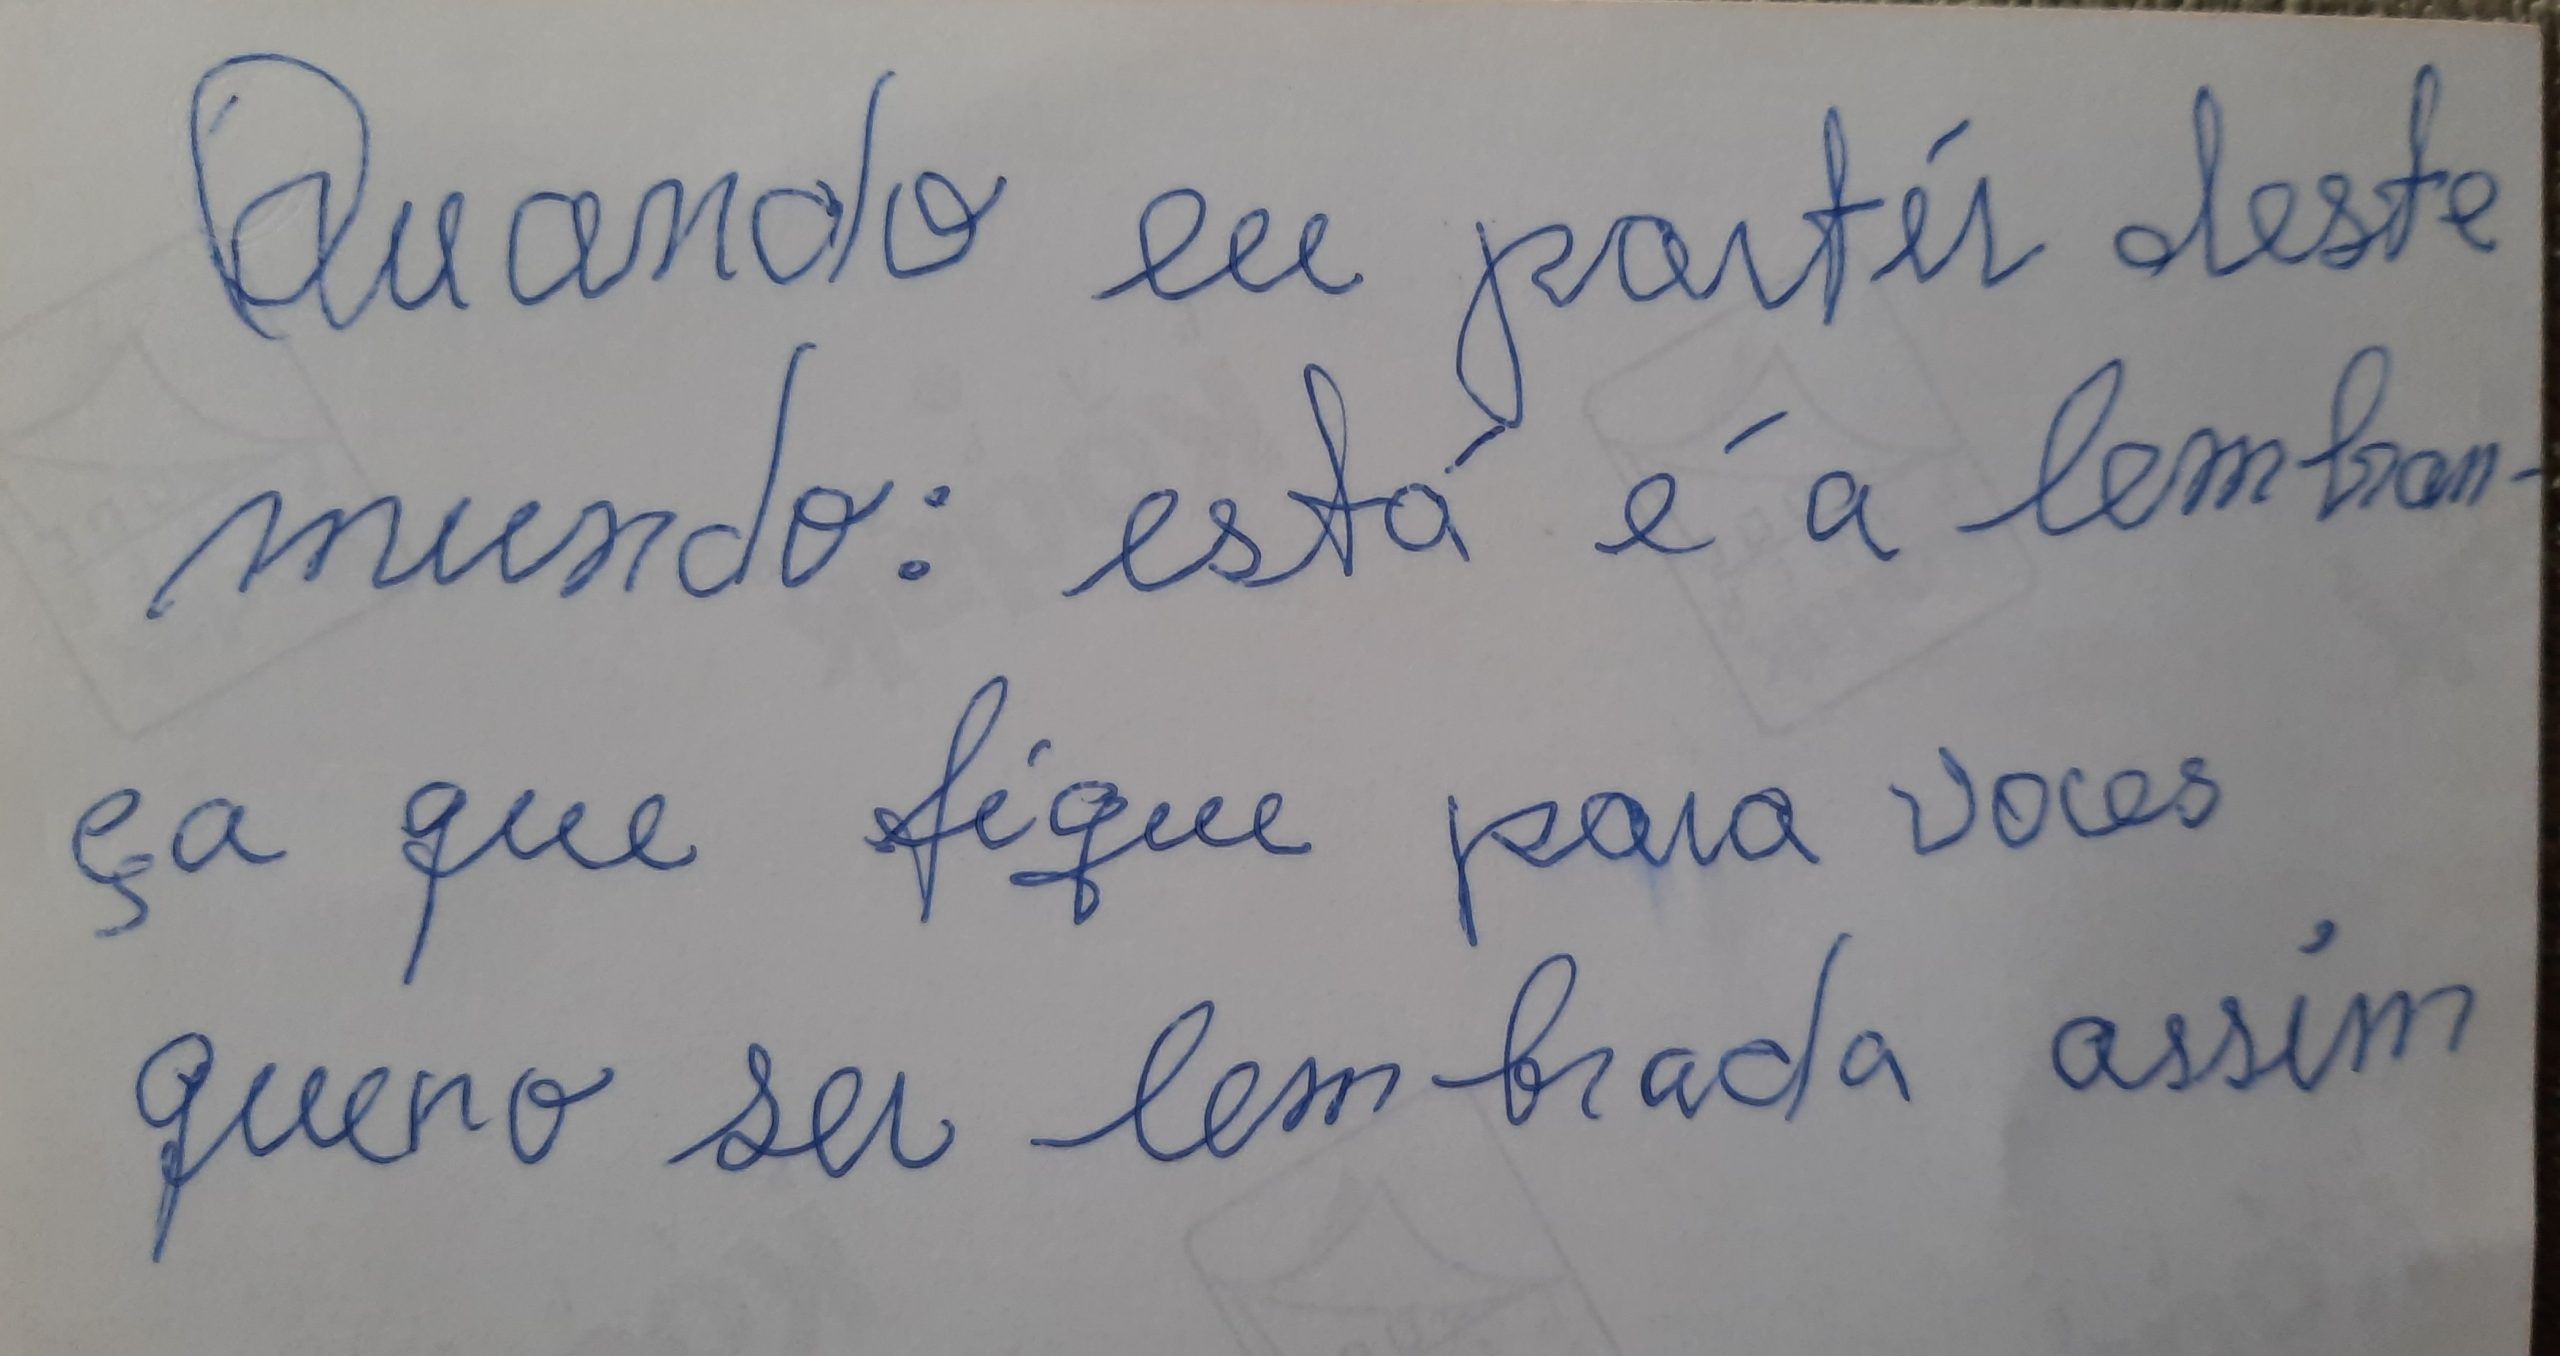 Quando eu partir deste
mundo: está é a lembran-
ça que fique para voces
quero ser lembrada assim